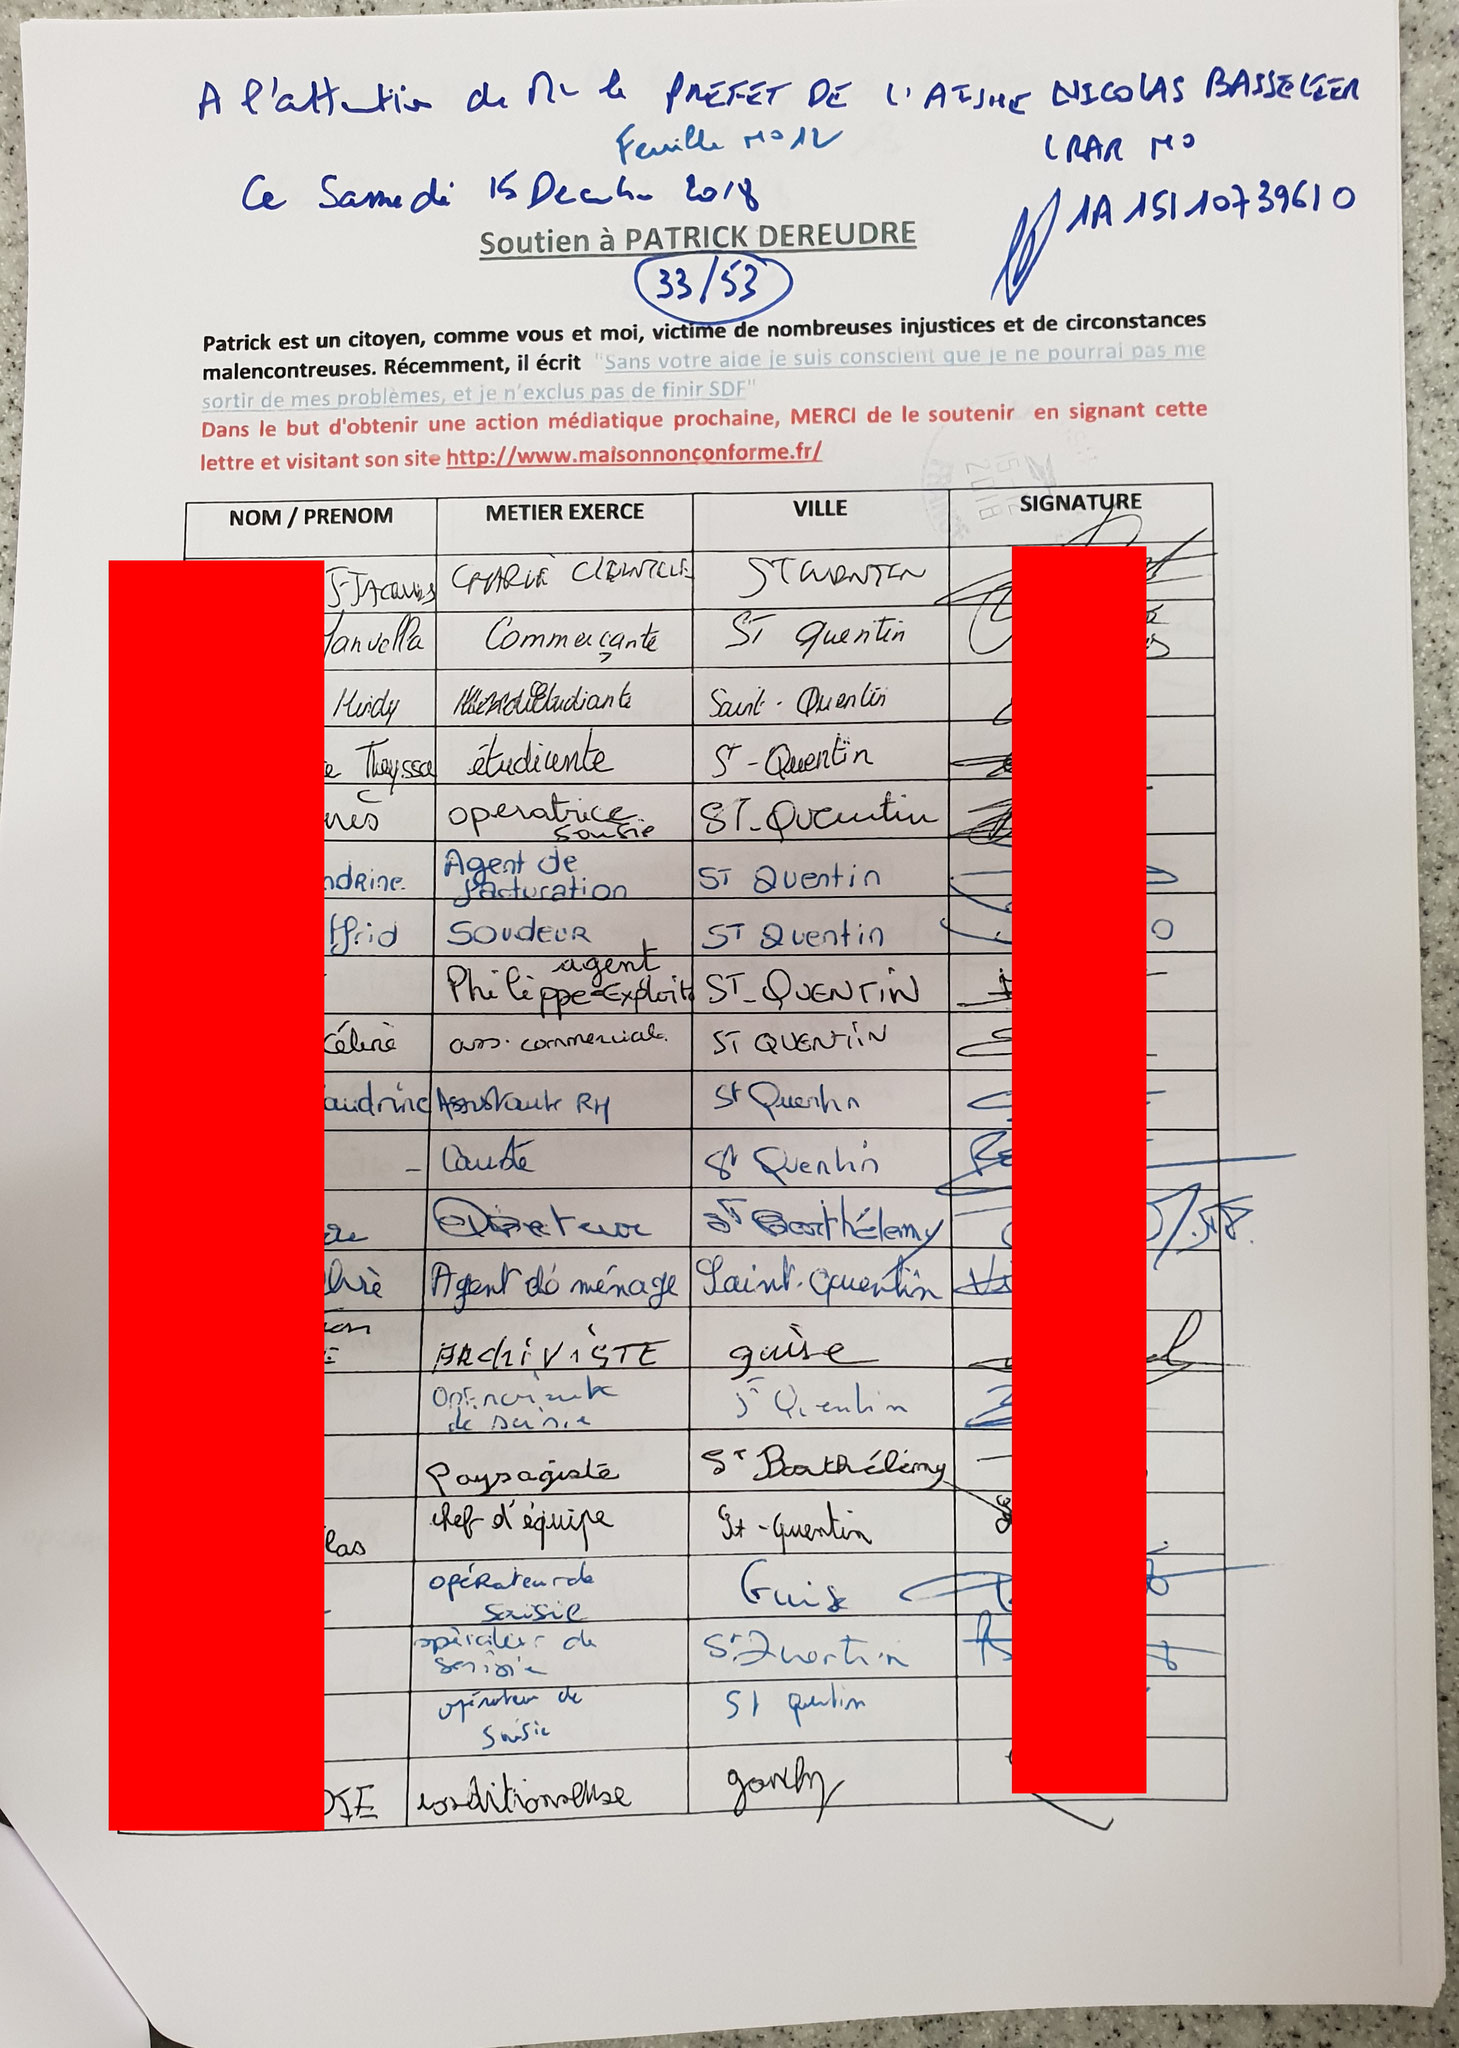 A l'attention de Mr le PREFET DE L'AISNE NICOLAS BASSELIER
Feuille No 12
LRAR No
Ce Samedi 15 Decembre 2018
1A 151 107 3961 0
Soutien à PATRICK DEREUDRE
33/53
Patrick est un citoyen, comme vous et moi, victime de nombreuses injustices et de circonstances
malencontreuses. Récemment, il écrit "Sans votre aide je suis conscient que je ne pourrai pas me
sortir de mes problèmes, et je n'exclus pas de finir SDF"
Dans le but d'obtenir une action médiatique prochaine, MERCI de le soutenir en signant cette
lettre et visitant son site http://www.maisonnonconforme.fr/
NOM / PRENOM METIER EXERCE VILLE SIGNATURE
J-JACQUES CHARGÉ CLIENTELE ST QUENTIN
Manuella Commerçante ST Quentin
Hindy Etudiante Saint-Quentin
étudiante St-Quentin
operatrice saisie ST-Quentin
ndrine. Agent de facturation ST Quentin
ffrid SOUDEUR ST Quentin
Philippe agent Exploit ST-QUENTIN
Céline ass. commerciale ST QUENTIN
andrine Assistante RH St Quentin
St Quentin
Directeur ST Barthélemy
Agent de ménage Saint-Quentin
ARCHIVISTE guise
de saisie St Quentin
paysagiste ST Barthélémy
las chef d'équipe St-Quentin
opérateur de saisie Guise
opérateur de saisie St Quentin
opérateur de saisie St Quentin
conditionneuse